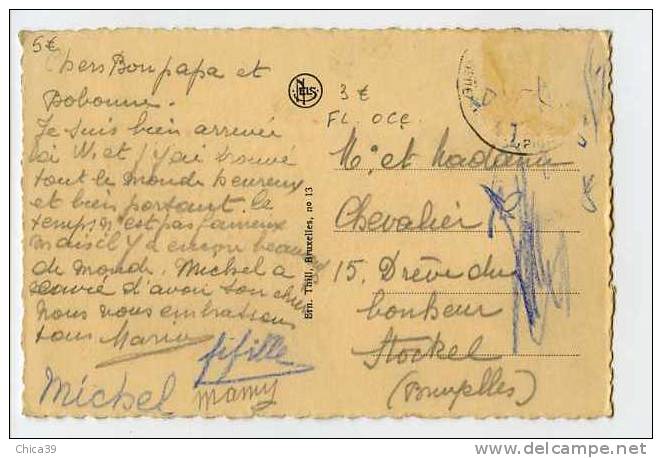 5€
Chers Bonpapa et
Bobonne.
Je suis bien arrivée
à W. et j'y ai trouvé
tout le monde heureux
et bien portant. Le
temps n'est pas fameux
mais il y a encore beau
de monde. Michel a
d'avoir son
Nous vous embrassons
tous Maria
fifille
Michel
Mamy
Nels
Ern. Thill, Bruxelles, no 13
3€
FL. OCC.
Mr et Madame
Chevalier
15, Drève du
bonheur
Stockel
(Bruxelles)
Chica39
http://www.delcampe.net